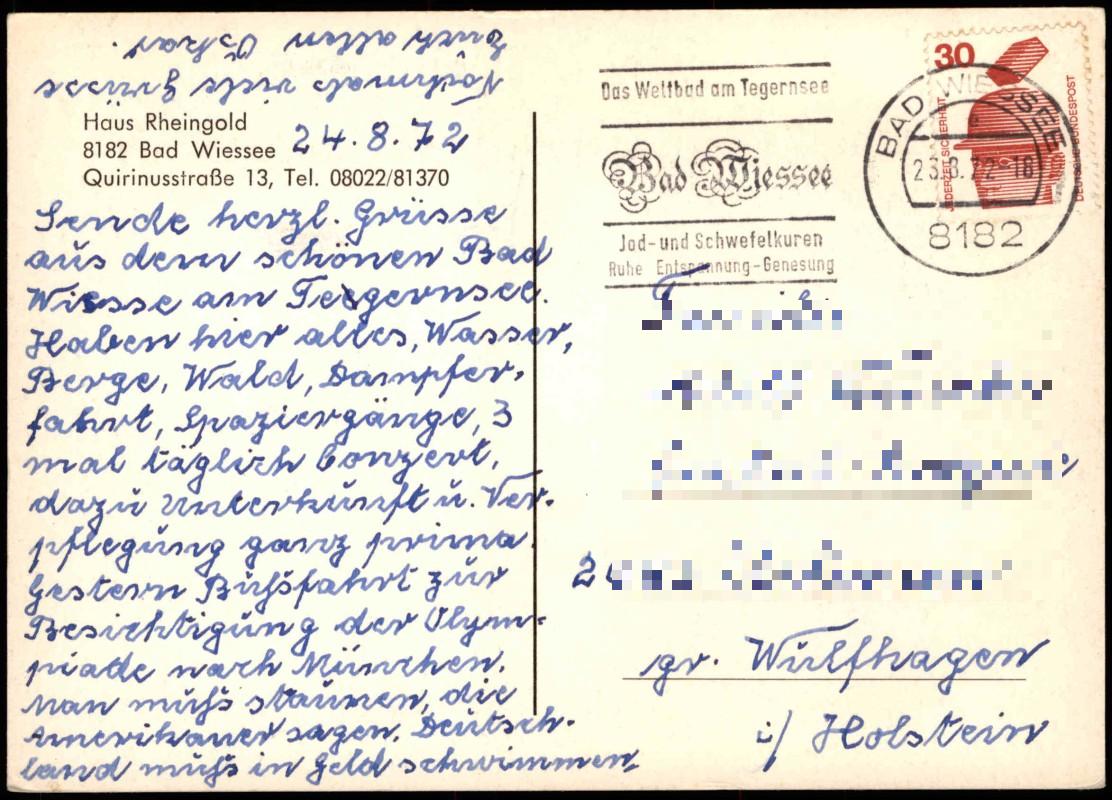 Haus Rheingold
8182 Bad Wiessee 24.8.72
Quirinusstraße 13, Tel. 08022/81370
Sende herzl. Grüsse
aus dem schönen Bad
Wiesse am Teegernsee.
Haben hier alles, Wasser,
Berge, Wald, Dampfer-
fahrt, Spaziergänge, 3
mal täglich Conzert,
dazu Unterkunft u. Ver-
pflegung ganz prima.
Gestern Bußfahrt zur
Besichtigung der Olym-
piade nach München.
Man muß staunen, die
Amerikaner sagen. Deutsch-
land muß in Geld schwimmen,
Nochmals viele Grüsse
Euch allen Oskar.
Das Weltbad am Tegernsee
Bad Wiessee
Jod-und Schwefelkuren
Ruhe Entspannung-Genesung
BAD WIESSEE
23.8.72-18
8182
30
JEDERZEIT SICHERHEIT
DEUTSCHE BUNDESPOST
gr. Wulfhagen
i/ Holstein